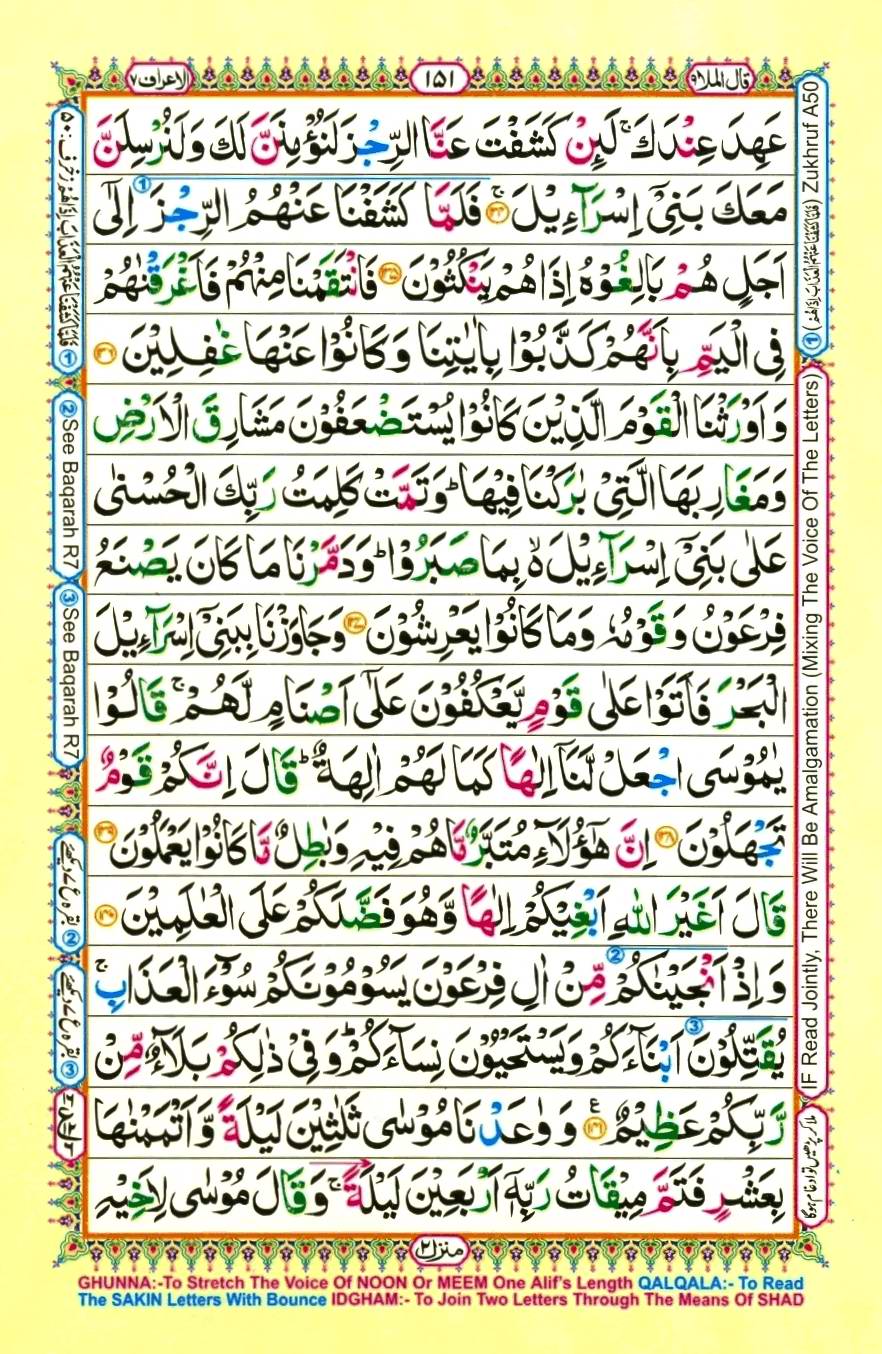 قال الملا ٩
١٥١
الاعراف ٧
عَهِدَ عِنْدَكَ ۚ لَىِٕنْ كَشَفْتَ عَنَّا الرِّجْزَ لَنُؤْمِنَنَّ لَكَ وَلَنُرْسِلَنَّ
مَعَكَ بَنِيْۤ اِسْرَآءِيْلَ ۚ ﴿١٣٤﴾ فَلَمَّا كَشَفْنَا عَنْهُمُ الرِّجْزَ اِلٰۤى
اَجَلٍ هُمْ بَالِغُوْهُ اِذَا هُمْ يَنْكُثُوْنَ ﴿١٣٥﴾ فَانْتَقَمْنَا مِنْهُمْ فَاَغْرَقْنٰهُمْ
فِى الْيَمِّ بِاَنَّهُمْ كَذَّبُوْا بِاٰيٰتِنَا وَكَانُوْا عَنْهَا غٰفِلِيْنَ ﴿١٣٦﴾
وَاَوْرَثْنَا الْقَوْمَ الَّذِيْنَ كَانُوْا يُسْتَضْعَفُوْنَ مَشَارِقَ الْاَرْضِ
وَمَغَارِبَهَا الَّتِيْ بٰرَكْنَا فِيْهَا ؕ وَتَمَّتْ كَلِمَتُ رَبِّكَ الْحُسْنٰى
عَلٰى بَنِيْۤ اِسْرَآءِيْلَ ۙ۬ بِمَا صَبَرُوْا ؕ وَدَمَّرْنَا مَا كَانَ يَصْنَعُ
فِرْعَوْنُ وَقَوْمُهٗ وَمَا كَانُوْا يَعْرِشُوْنَ ﴿١٣٧﴾ وَجَاوَزْنَا بِبَنِيْۤ اِسْرَآءِيْلَ
الْبَحْرَ فَاَتَوْا عَلٰى قَوْمٍ يَّعْكُفُوْنَ عَلٰۤى اَصْنَامٍ لَّهُمْ ۚ قَالُوْا
يٰمُوْسَى اجْعَلْ لَّنَاۤ اِلٰهًا كَمَا لَهُمْ اٰلِهَةٌ ؕ قَالَ اِنَّكُمْ قَوْمٌ
تَجْهَلُوْنَ ﴿١٣٨﴾ اِنَّ هٰۤؤُلَآءِ مُتَبَّرٌ مَّا هُمْ فِيْهِ وَبٰطِلٌ مَّا كَانُوْا يَعْمَلُوْنَ ﴿١٣٩﴾
قَالَ اَغَيْرَ اللّٰهِ اَبْغِيْكُمْ اِلٰهًا وَّهُوَ فَضَّلَكُمْ عَلَى الْعٰلَمِيْنَ ﴿١٤٠﴾
وَاِذْ اَنْجَيْنٰكُمْ مِّنْ اٰلِ فِرْعَوْنَ يَسُوْمُوْنَكُمْ سُوْٓءَ الْعَذَابِ ۚ
يُقَتِّلُوْنَ اَبْنَآءَكُمْ وَيَسْتَحْيُوْنَ نِسَآءَكُمْ ؕ وَفِيْ ذٰلِكُمْ بَلَآءٌ مِّنْ
رَّبِّكُمْ عَظِيْمٌ ﴿١٤١﴾ ع وَوٰعَدْنَا مُوْسٰى ثَلٰثِيْنَ لَيْلَةً وَّاَتْمَمْنٰهَا
بِعَشْرٍ فَتَمَّ مِيْقَاتُ رَبِّهٖۤ اَرْبَعِيْنَ لَيْلَةً ۚ وَقَالَ مُوْسٰى لِاَخِيْهِ
① (فَلَمَّا كَشَفْنَا عَنْهُمُ الْعَذَابَ اِذَا هُمْ) Zukhruf A50
IF Read Jointly, There Will Be Amalgamation (Mixing The Voice Of The Letters)
ملا کر پڑھیں تو ادغام ہوگا
① فَلَمَّا كَشَفْنَا عَنْهُمُ الْعَذَابَ اِذَا هُمْ زخرف ٥٠
② See Baqarah R7
③ See Baqarah R7
② بقرہ ع دیکھئے
③ بقرہ ع دیکھئے
منزل ٢
GHUNNA:-To Stretch The Voice Of NOON Or MEEM One Alif's Length QALQALA:- To Read
The SAKIN Letters With Bounce IDGHAM:- To Join Two Letters Through The Means Of SHAD